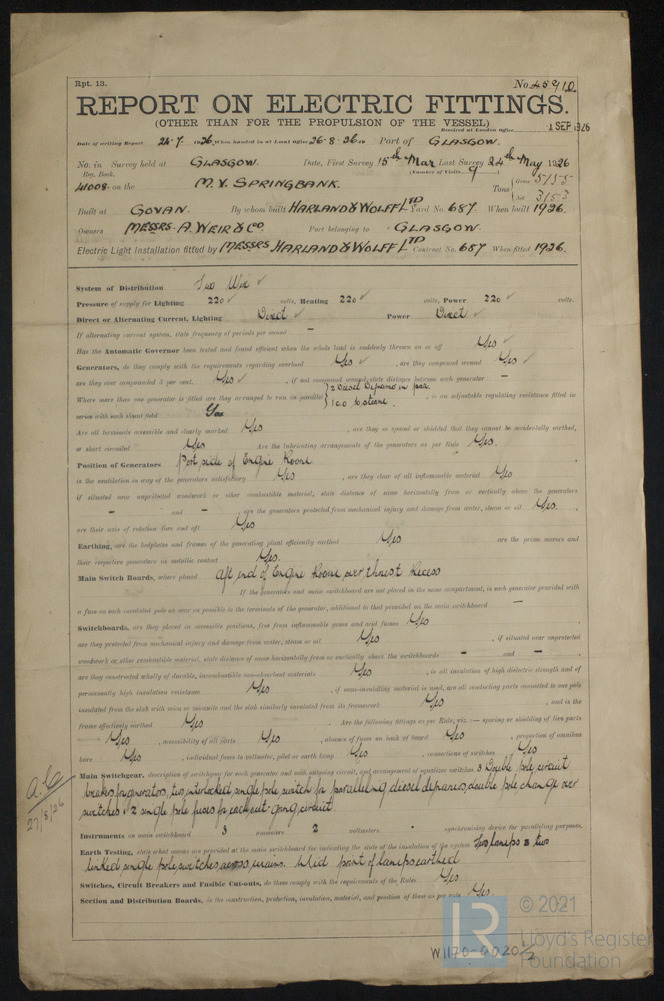 Rpt. 13.
No. 45910
REPORT ON ELECTRIC FITTINGS.
(OTHER THAN FOR THE PROPULSION OF THE VESSEL)
Received at London Office 1 SEP 1926
Date of writing Report 24·7 1926 When handed in at Local Office 26·8·26 19 Port of GLASGOW.
No. in Survey held at GLASGOW. Date, First Survey 15th Mar Last Survey 24th May 1926
Reg. Book. (Number of Visits 9)
41008 on the M.V. SPRINGBANK. Tons { Gross 5155
Net 3153
Built at GOVAN. By whom built HARLAND & WOLFF LTD Yard No. 687 When built 1926.
Owners MESSRS A. WEIR & CO. Port belonging to GLASGOW.
Electric Light Installation fitted by MESSRS HARLAND & WOLFF LTD Contract No. 687 When fitted 1926.
System of Distribution Two Wire ✓
Pressure of supply for Lighting 220 ✓ volts, Heating 220 ✓ volts, Power 220 ✓ volts.
Direct or Alternating Current, Lighting Direct ✓ Power Direct ✓
If alternating current system, state frequency of periods per second —
Has the Automatic Governor been tested and found efficient when the whole load is suddenly thrown on or off Yes ✓
Generators, do they comply with the requirements regarding overload Yes ✓, are they compound wound Yes ✓
are they over compounded 5 per cent. Yes ✓, if not compound wound state distance between each generator —
Where more than one generator is fitted are they arranged to run in parallel } 2 Diesel Dynamos in par. , is an adjustable regulating resistance fitted in
series with each shunt field Yes
Are all terminals accessible and clearly marked Yes, are they so spaced or shielded that they cannot be accidentally earthed,
or short circuited Yes Are the lubricating arrangements of the generators as per Rule Yes.
Position of Generators Port side of Engine Room
is the ventilation in way of the generators satisfactory Yes, are they clear of all inflammable material Yes
if situated near unprotected woodwork or other combustible material, state distance of same horizontally from or vertically above the generators
— and —, are the generators protected from mechanical injury and damage from water, steam or oil Yes.
are their axis of rotation fore and aft Yes
Earthing, are the bedplates and frames of the generating plant efficiently earthed Yes are the prime movers and
their respective generators in metallic contact Yes.
Main Switch Boards, where placed Aft end of Engine Room over thrust Recess
If the generators and main switchboard are not placed in the same compartment, is each generator provided with
a fuse on each insulated pole as near as possible to the terminals of the generator, additional to that provided on the main switchboard —
Switchboards, are they placed in accessible positions, free from inflammable gases and acid fumes Yes
are they protected from mechanical injury and damage from water, steam or oil Yes, if situated near unprotected
woodwork or other combustible material, state distance of same horizontally from or vertically above the switchboards — and —
are they constructed wholly of durable, incombustible non-absorbent materials Yes, is all insulation of high dielectric strength and of
permanently high insulation resistance Yes, if semi-insulating material is used, are all conducting parts connected to one pole
insulated from the slab with mica or micanite and the slab similarly insulated from its framework Yes, and is the
frame effectively earthed Yes. Are the following fittings as per Rule, viz.:— spacing or shielding of live parts
Yes, accessibility of all parts Yes, absence of fuses on back of board Yes, proportion of omnibus
bars Yes, individual fuses to voltmeter, pilot or earth lamp Yes, connections of switches Yes
Main Switchgear, description of switchgear for each generator and each outgoing circuit, and arrangement of equalizer switches 3 Double pole circuit
breakers for generators, two interlocked single pole switch for paralleling diesel dynamos, double pole change over
switches & 2 single pole fuses for each out-going circuit
a.C
27/8/26
Instruments on main switchboard 3 ammeters 2 voltmeters - synchronising device for paralleling purposes.
Earth Testing, state what means are provided at the main switchboard for indicating the state of the insulation of the system Two lamps & two
linked single pole switches across mains. Mid point of lamps earthed
Switches, Circuit Breakers and Fusible Cut-outs, do these comply with the requirements of the Rules Yes
Section and Distribution Boards, is the construction, protection, insulation, material, and position of these as per rule Yes.
W1170-0020 1/2
LR
© 2021
Lloyd's Register
Foundation